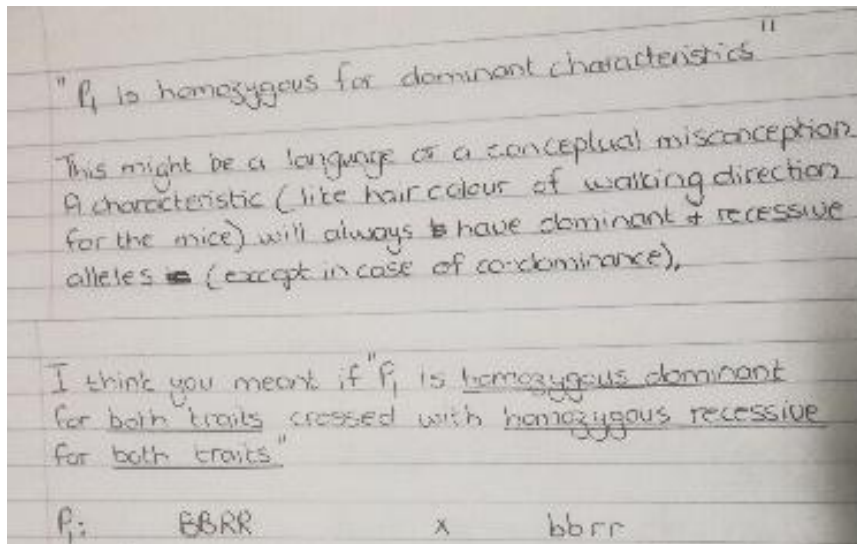 "P₁ is homozygous for dominant characteristics"
This might be a language or a conceptual misconception
A characteristic (like hair colour of walking direction
for the mice) will always have dominant + recessive
alleles (except in case of co-dominance).
I think you meant if "P₁ is homozygous dominant
for both traits crossed with homozygous recessive
for both traits"
P₁: BBRR x bbrr